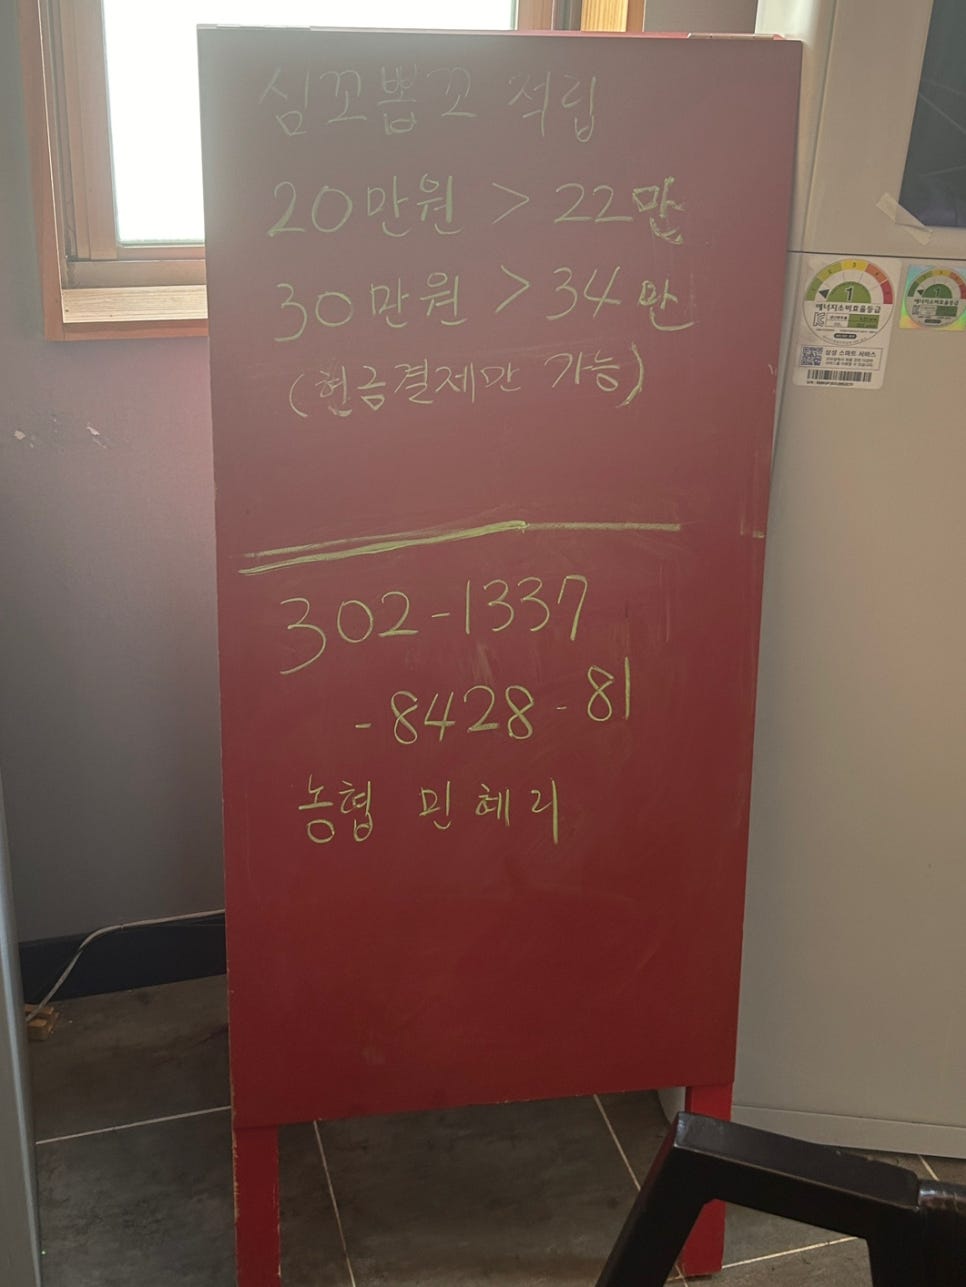 심꼬뽑꼬 적립
20만원 > 22만
30만원 > 34만
(현금결제만 가능)
302-1337
-8428-81
농협 민혜리
1
에너지소비효율등급
삼성 스마트 서비스
1
에너지소비효율등급